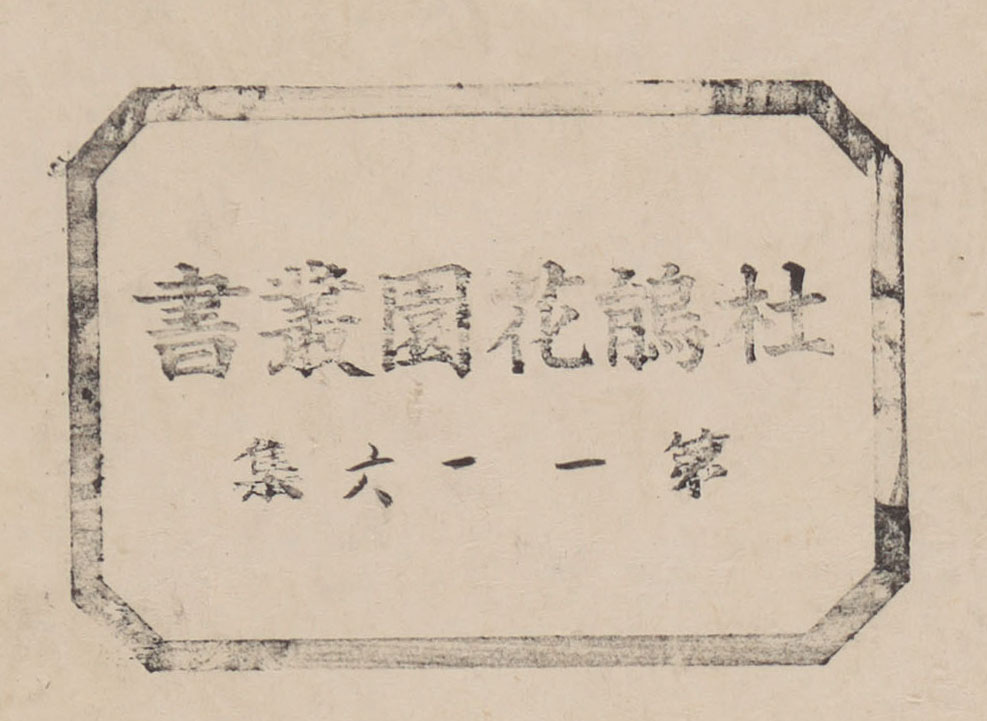 杜鵑花園叢書
第一一六集